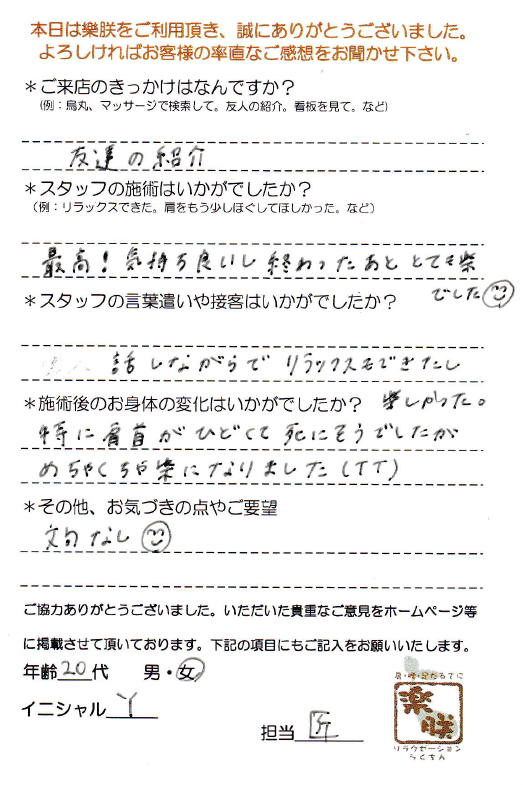 本日は樂朕をご利用頂き、誠にありがとうございました。
よろしければお客様の率直なご感想をお聞かせ下さい。
＊ご来店のきっかけはなんですか？
（例：烏丸、マッサージで検索して。友人の紹介。看板を見て。など）
友達の紹介
＊スタッフの施術はいかがでしたか？
（例：リラックスできた。肩をもう少しほぐしてほしかった。など）
最高！気持ち良いし終わったあととても楽
でした
＊スタッフの言葉遣いや接客はいかがでしたか？
話しながらでリラックスもできたし
楽しかった。
＊施術後のお身体の変化はいかがでしたか？
特に肩首がひどくて死にそうでしたが
めちゃくちゃ楽になりました(TT)
＊その他、お気づきの点やご要望
文句なし
ご協力ありがとうございました。いただいた貴重なご意見をホームページ等
に掲載させて頂いております。下記の項目にもご記入をお願いいたします。
年齢20代　男・女
イニシャル Y
担当 匠
肩・腰・足おもてに
楽朕
リラクゼーション
らくちん